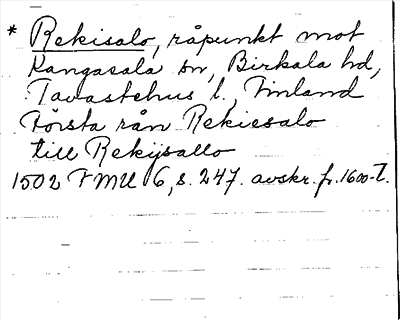 * Rekisalo, råpunkt mot
Kangasala sn, Birkala hd,
Tavastehus l., Finland
Första rån Rekiesalo
till Rekijsallo
1502 FMU 6, s. 247. avskr. fr. 1600-t.